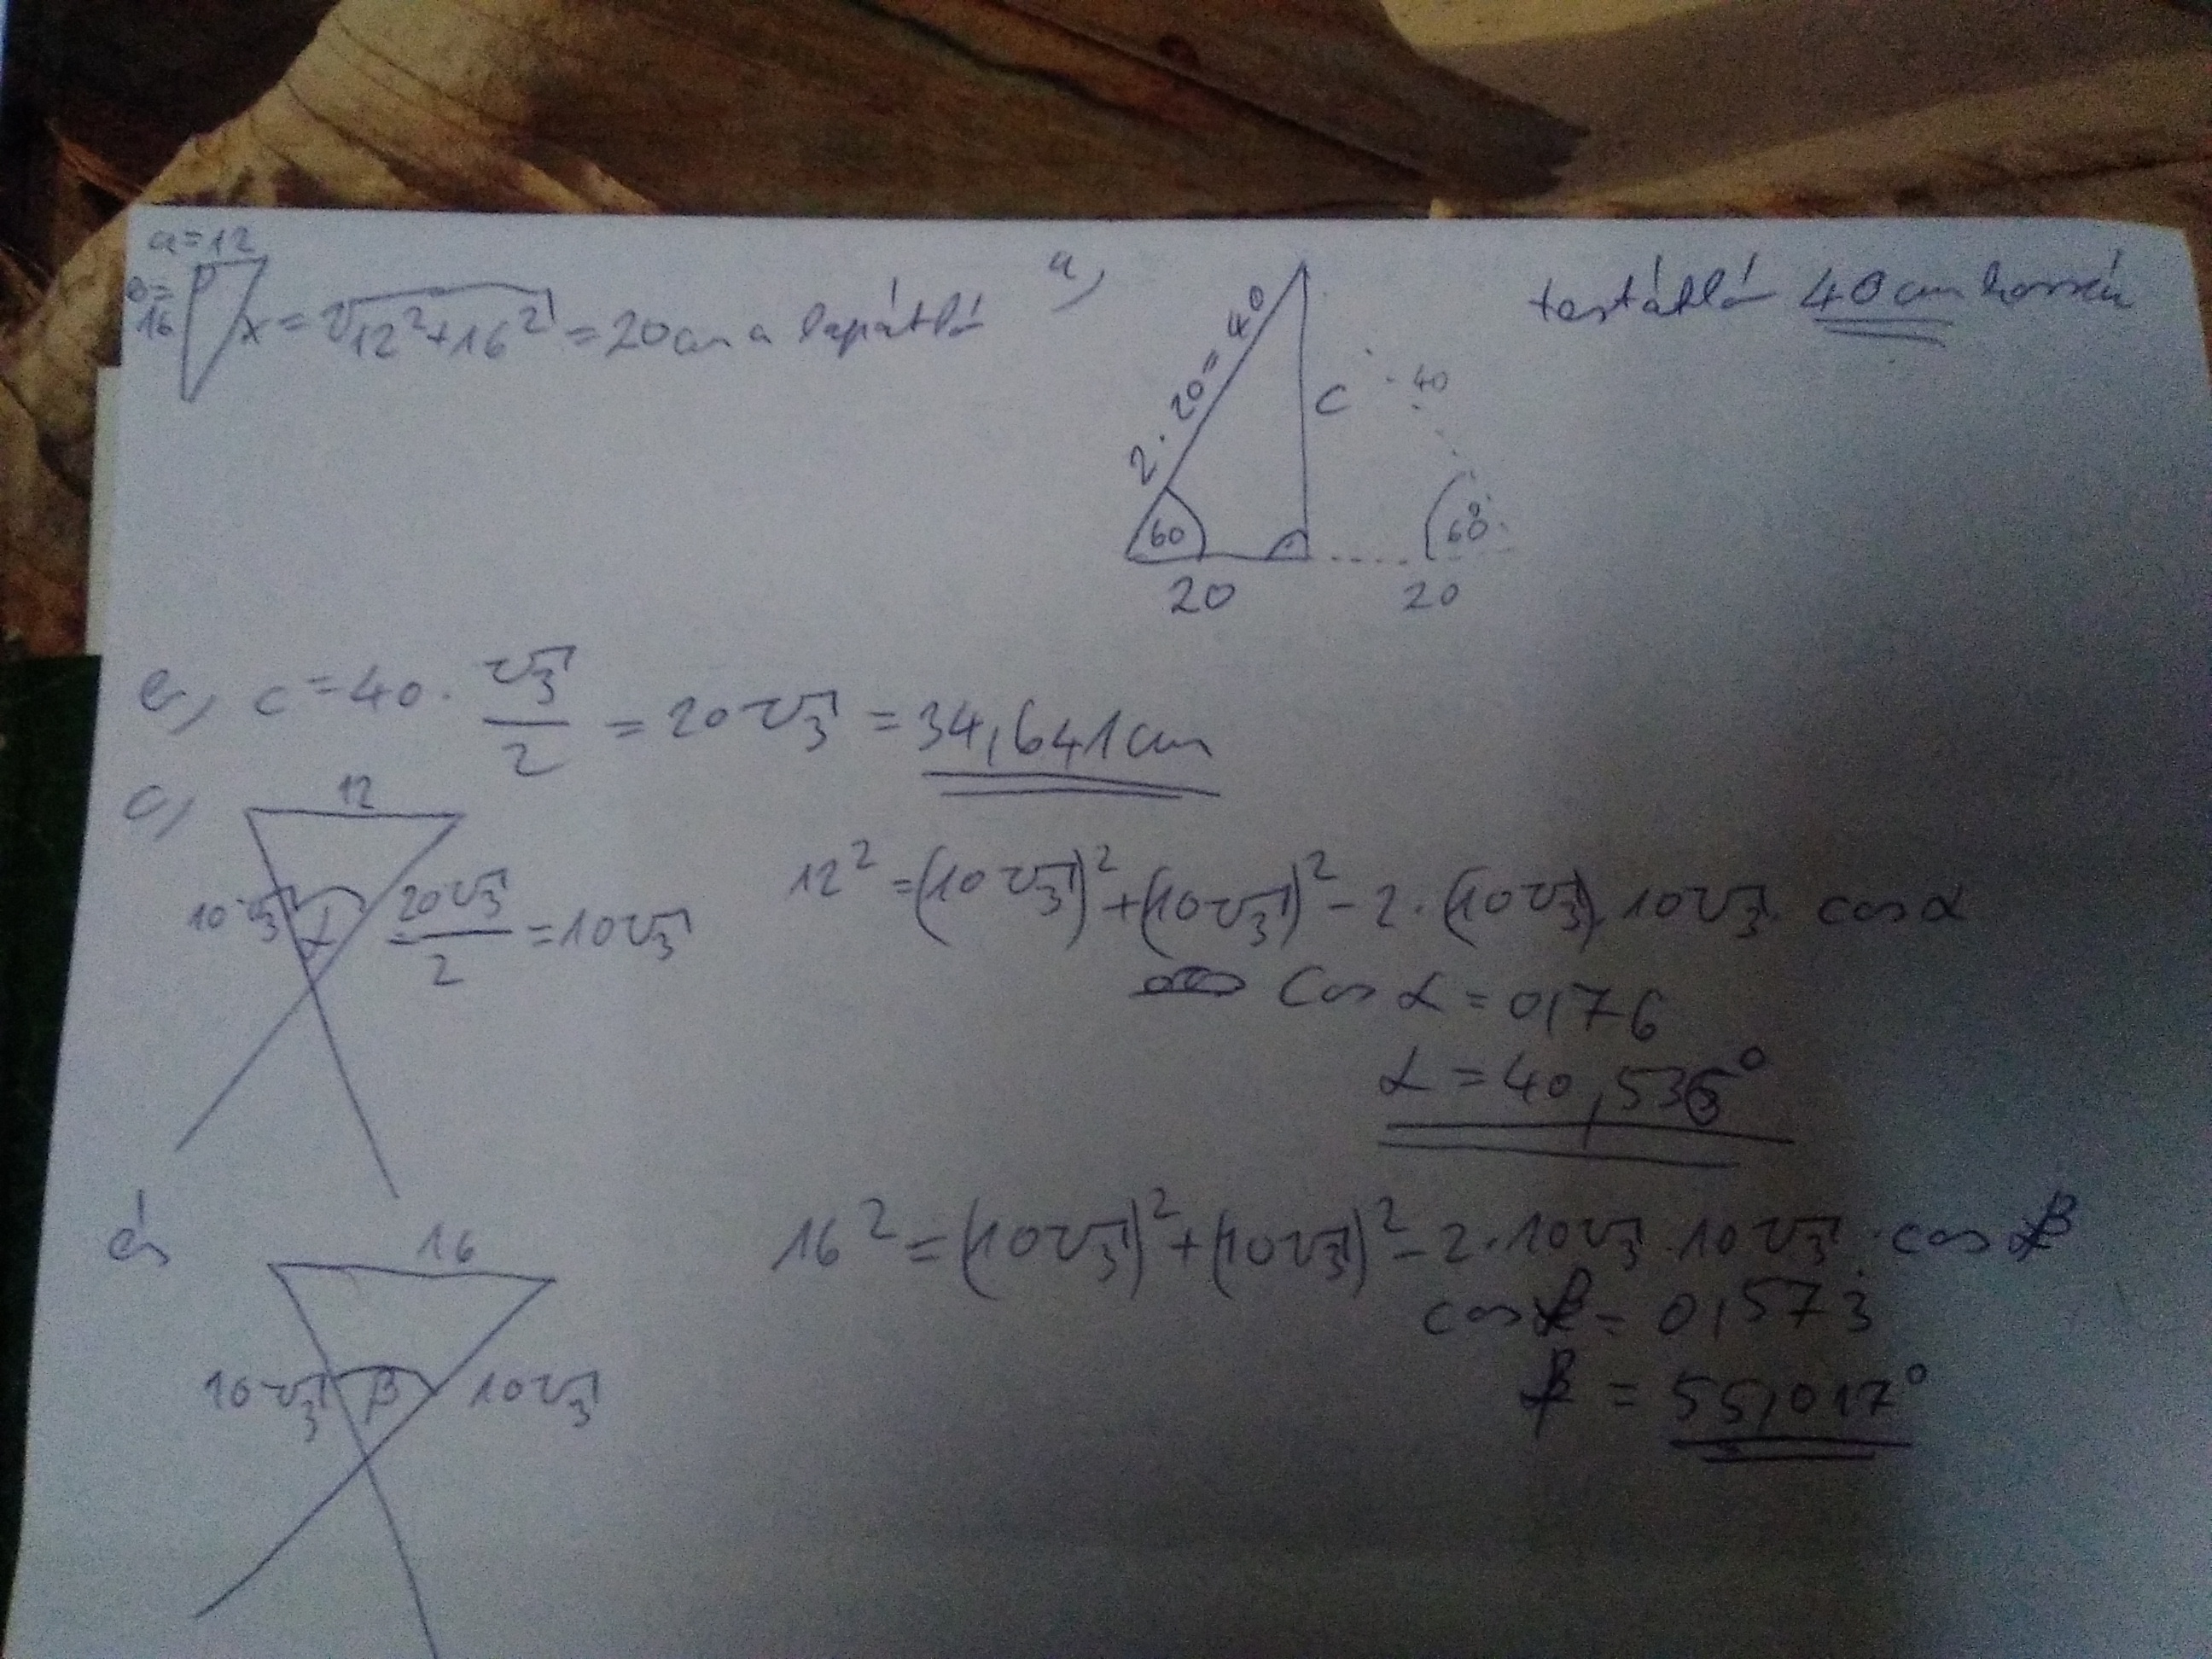 a=12
b=
16
x=√12²+16² = 20cm a lapátló
a,
testátló 40cm hosszú
2·20=40
c
40
60
60°
20
20
b, c=40·√3/2 = 20√3 = 34,641cm
c,
12
10√3 α 20√3/2 = 10√3
12² = (10√3)² + (10√3)² - 2·(10√3)·10√3· cos α
cos α = 0,76
α = 40,536°
és
16
16² = (10√3)² + (10√3)² - 2·10√3·10√3· cos β
cos β = 0,573
10√3 β 10√3
β = 55,017°